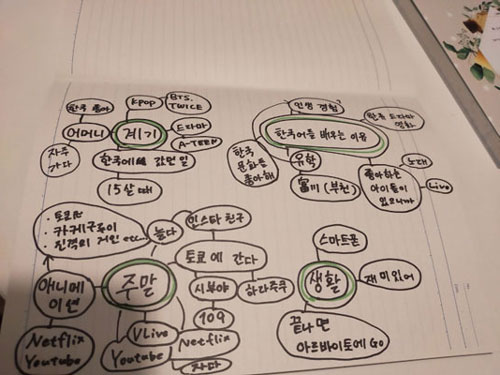 한국 좋아
어머니
자주
가다
Kpop
BTS,
TWICE
계기
드라마
A-TEEN
한국에 갔던 일
15살 때
인생 경험?
한국 드라마
영화
한국어를 배우는 이유
한국
문화를
좋아해
유학
富川 (부천)
좋아하는
아이돌이
있으니까
노래
Live
진격의 거인 etc
놀다
인스타 친구
토쿄에 간다
시부야
하라주쿠
109
애니메
이션
주말
Netflix
Youtube
VLive
Youtube
Netflix
자다
스마트폰
생활
재미있어
끝나면
아르바이트에 Go